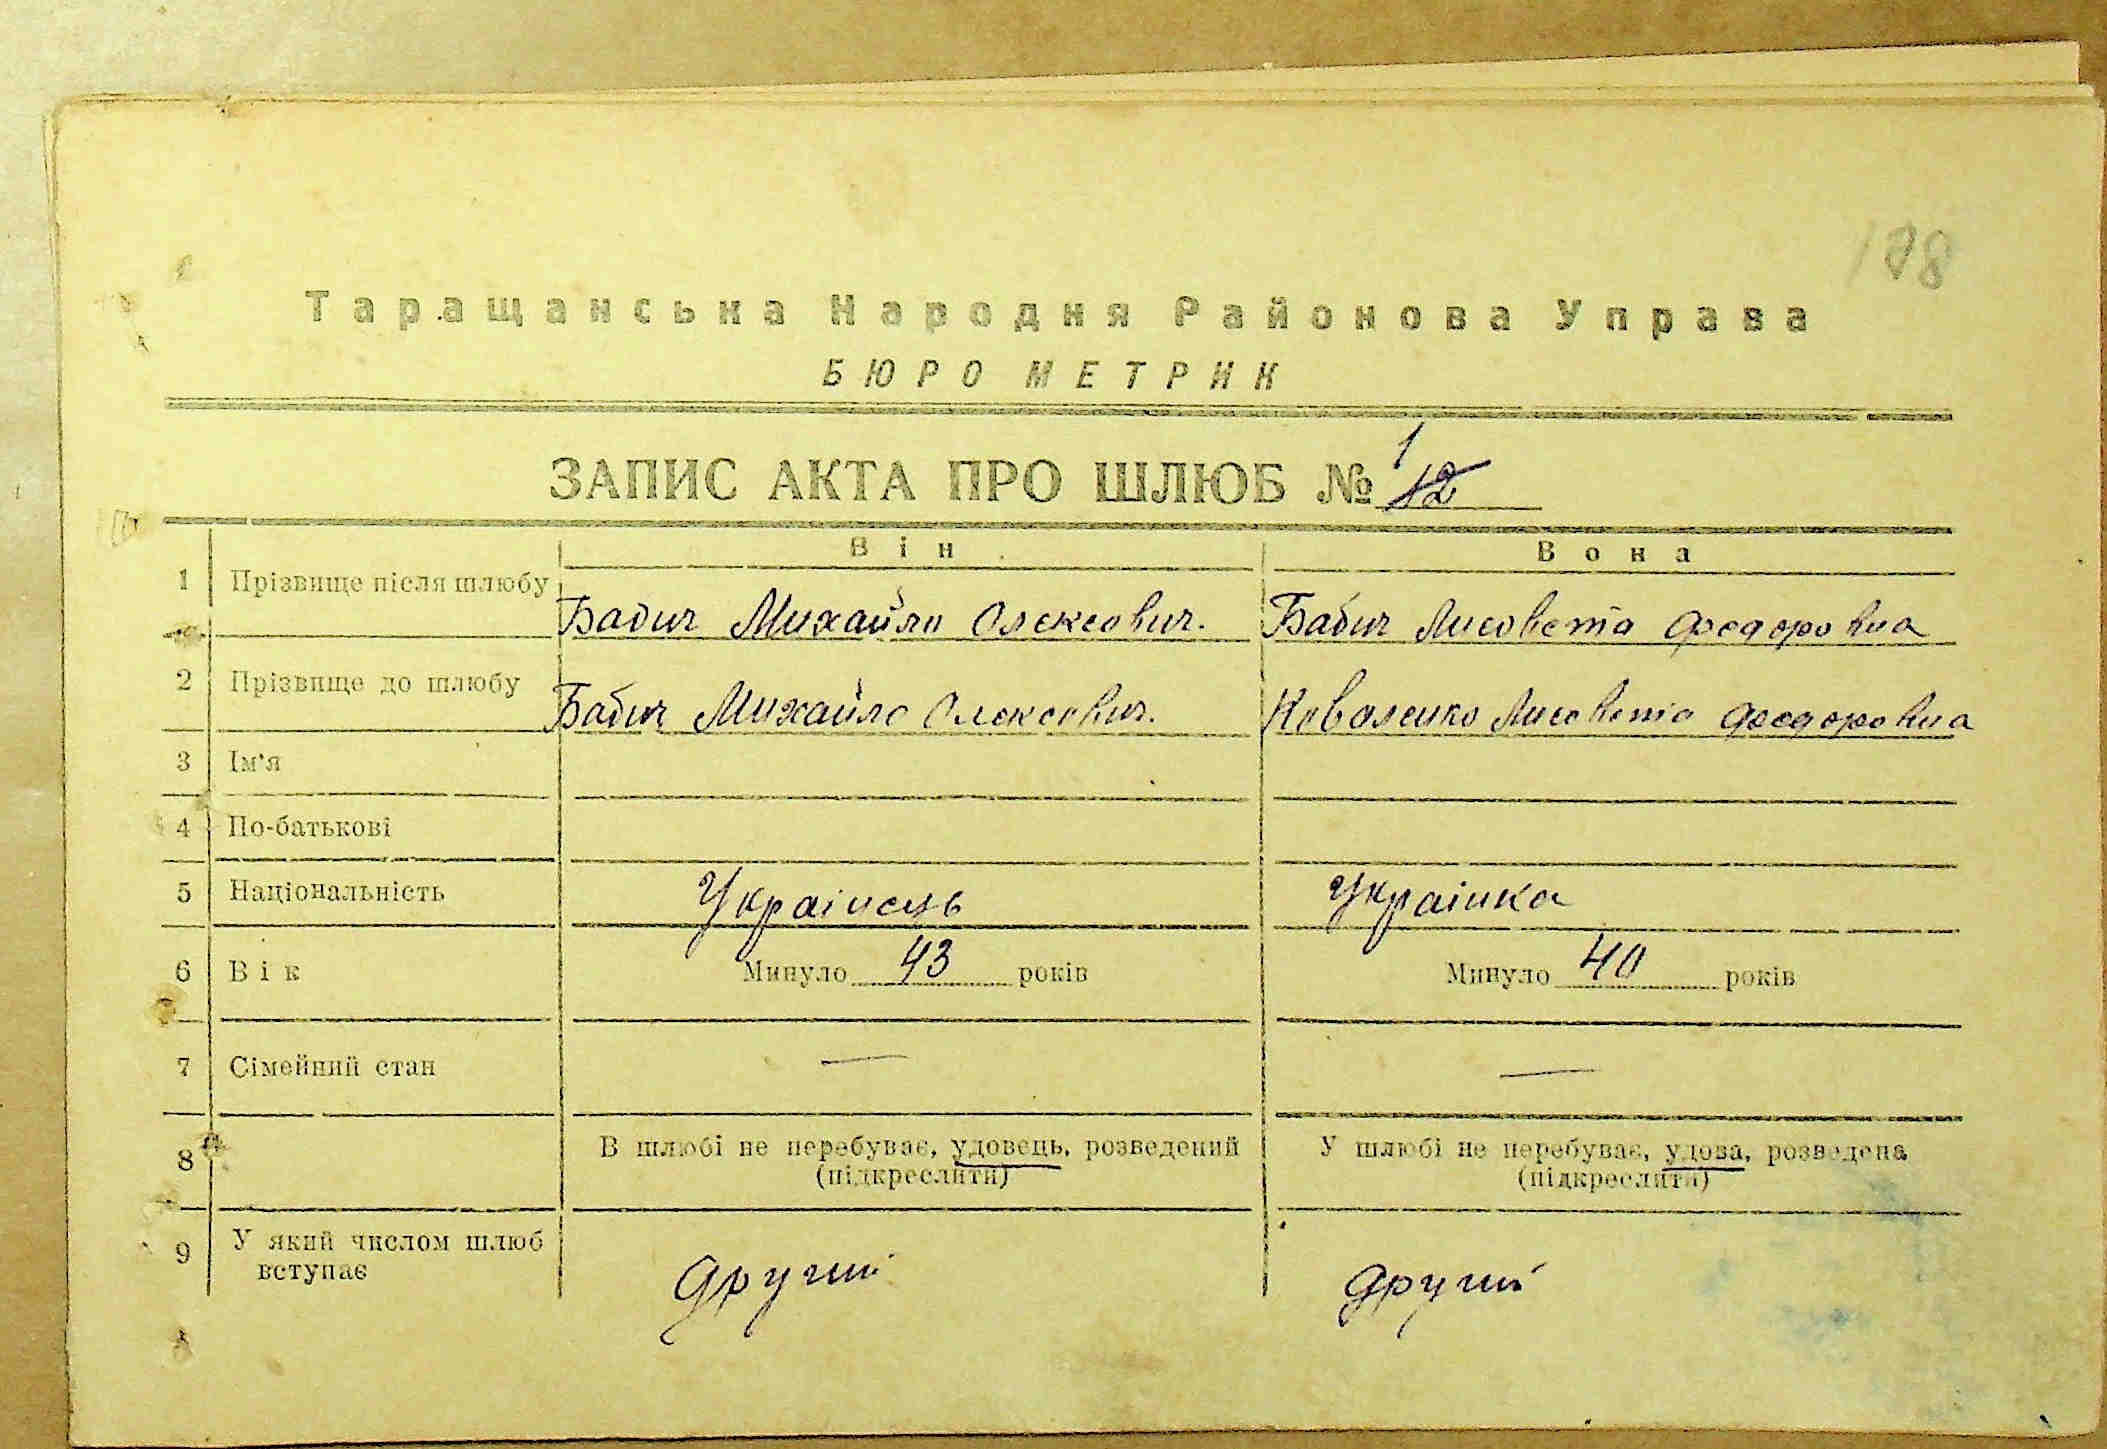 198
Таращанська Народня Районова Управа
БЮРО МЕТРИК
ЗАПИС АКТА ПРО ШЛЮБ № 12 1
Він Вона
1 Прізвище після шлюбу Бабич Михайло Олексович. Бабич Лисовета Федоровна
2 Прізвище до шлюбу Бабич Михайло Олексович. Коваленко Лисовета Федоровна
3 Ім'я
4 По-батькові
5 Національність Українець Українка
6 Вік Минуло 43 років Минуло 40 років
7 Сімейний стан — —
8 В шлюбі не перебуває, удовець, розведений У шлюбі не перебуває, удова, розведена
(підкреслити) (підкреслити)
9 У який числом шлюб Другий Другий
вступає